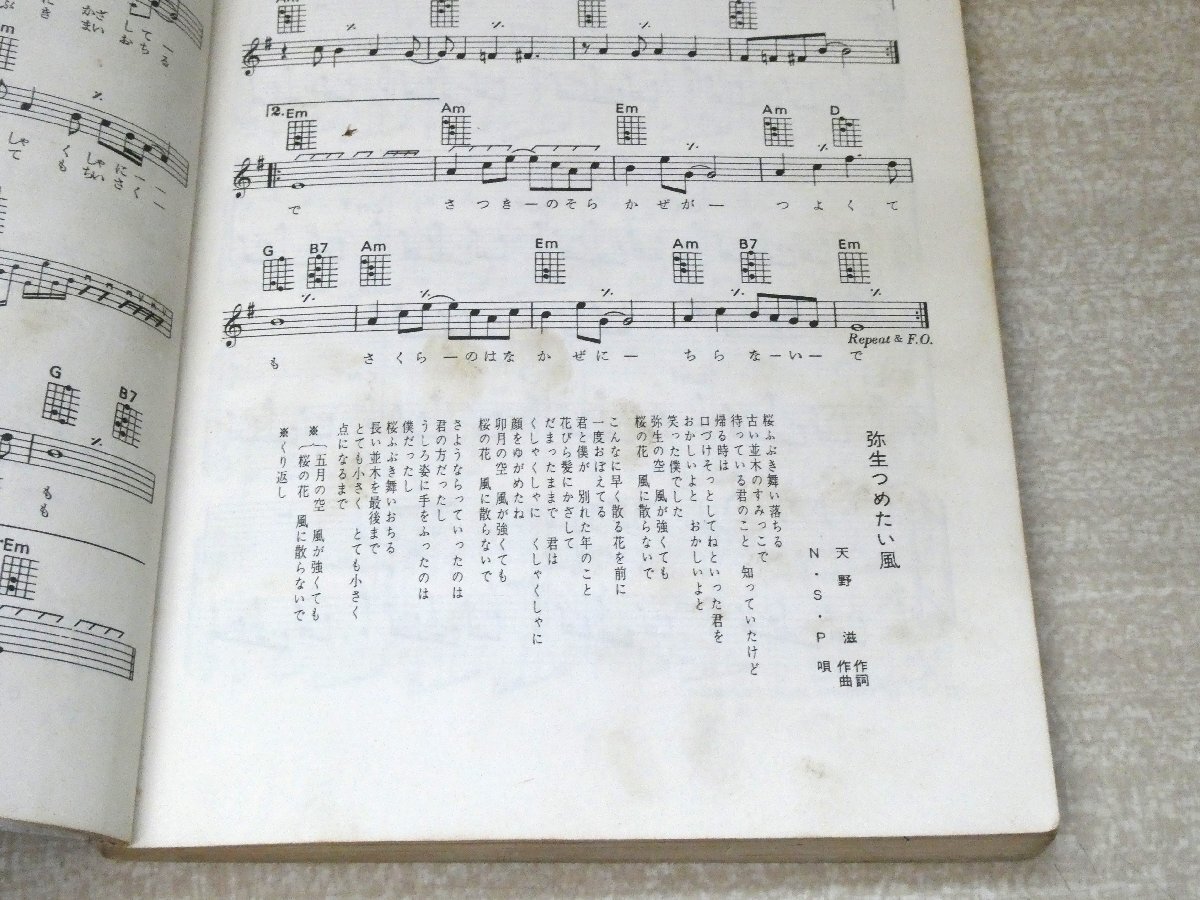 Am
2. Em Am Em Am D
で さつきーのそら かぜがー つよくて
G B7 Am Em Am B7 Em
Repeat & F.O.
も さくらーのはな かぜにー ちらなーいーで
G B7
も
Em
弥生つめたい風
天野 滋 作詞 作曲
N・S・P 唄
桜ふぶき舞い落ちる
古い並木のすみっこで
待っている君のこと 知っていたけど
帰る時は
口づけそっとしてねといった君を
おかしいよと おかしいよと
笑った僕でした
弥生の空 風が強くても
桜の花 風に散らないで
こんなに早く散る花を前に
一度おぼえてる
君と僕が 別れた年のこと
花びら髪にかざして
だまったままで 君は
くしゃくしゃに くしゃくしゃに
顔をゆがめたね
卯月の空 風が強くても
桜の花 風に散らないで
さようならっていったのは
君の方だったし
うしろ姿に手をふったのは
僕だったし
桜ふぶき舞いおちる
長い並木を最後まで
とても小さく とても小さく
点になるまで
※〔五月の空 風が強くても
桜の花 風に散らないで
※くり返し